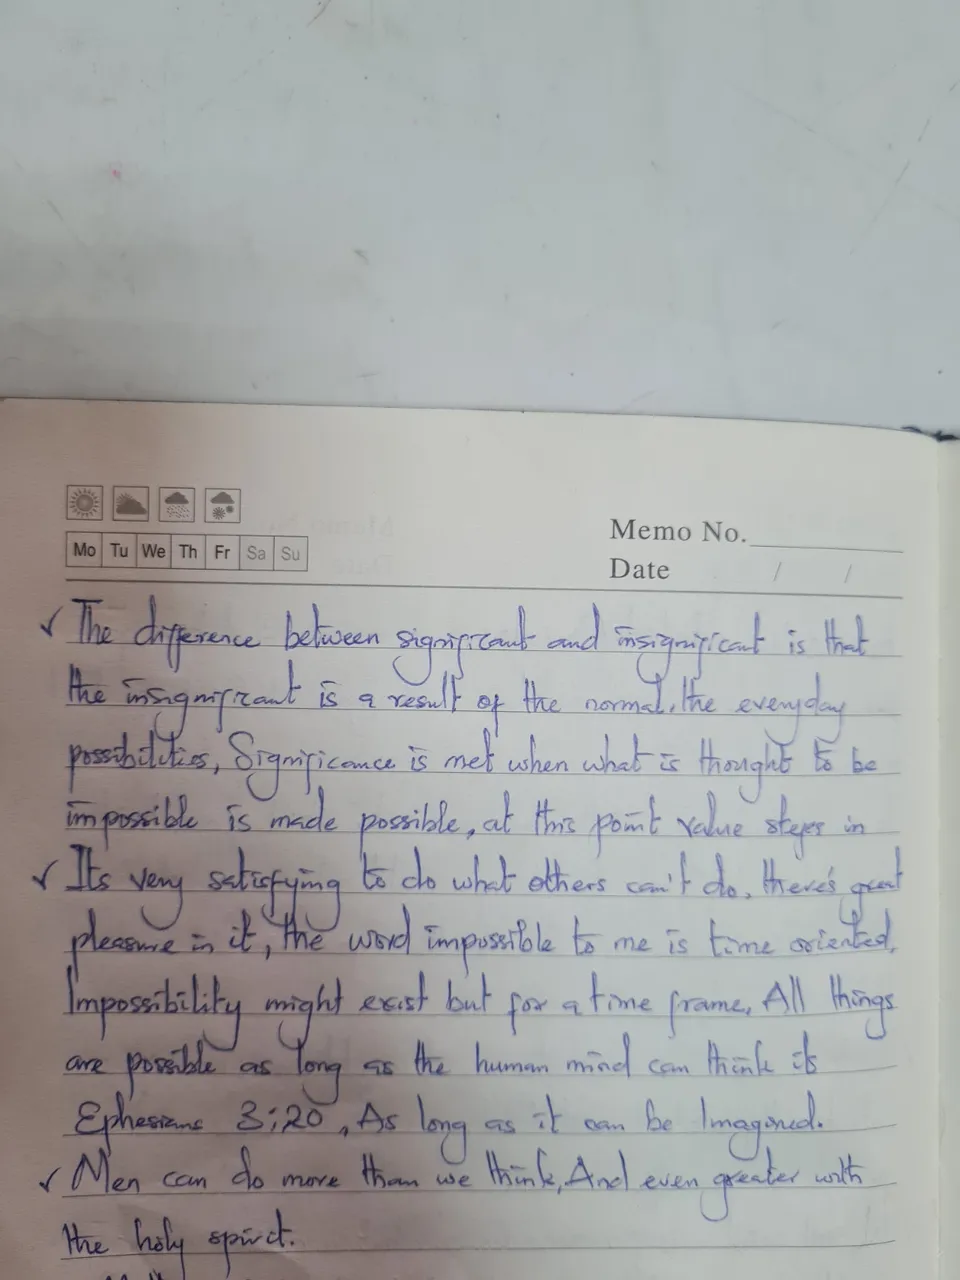 Mo Tu We Th Fr Sa Su
Memo No.
Date / /
✓ The difference between significant and insignificant is that
the insignificant is a result of the normal, the everyday
possibilities, Significance is met when what is thought to be
impossible is made possible, at this point value steps in
✓ Its very satisfying to do what others can't do, there's great
pleasure in it, the word impossible to me is time oriented,
Impossibility might exist but for a time frame, All things
are possible as long as the human mind can think it
Ephesians 3:20, As long as it can be Imagined.
✓ Men can do more than we think, And even greater with
the holy spirit.